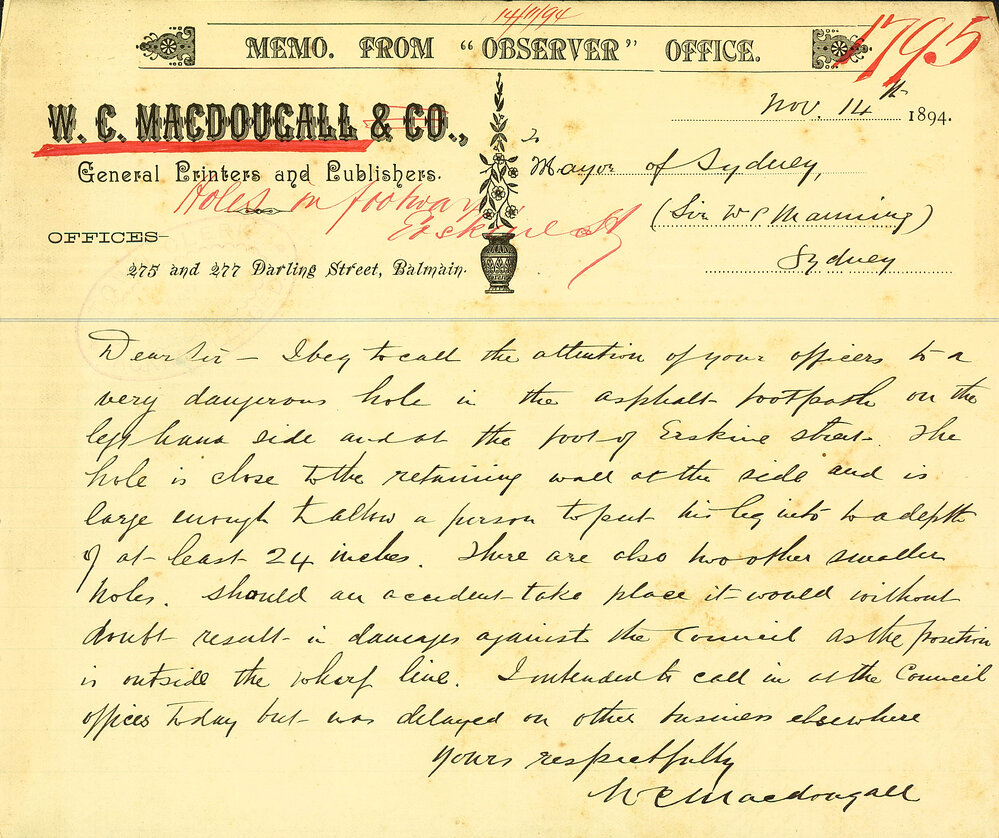 14/11/94
MEMO. FROM "OBSERVER" OFFICE.
1795
Nov. 14th 1894.
W. C. MACDOUGALL & CO.,
General Printers and Publishers.
Holes in footway
Erskine St
OFFICES—
275 and 277 Darling Street, Balmain.
To
Mayor of Sydney,
(Sir W P Manning)
Sydney
Dear Sir – I beg to call the attention of your officers to a
very dangerous hole in the asphalt footpath on the
left hand side and at the foot of Erskine street. The
hole is close to the retaining wall at the side and is
large enough to allow a person to put his leg into to a depth
of at least 24 inches. There are also two other smaller
holes. Should an accident take place it would without
doubt result in damages against the Council as the position
is outside the wharf line. I intended to call in at the Council
offices today but was delayed on other business elsewhere
Yours respectfully
W C Macdougall